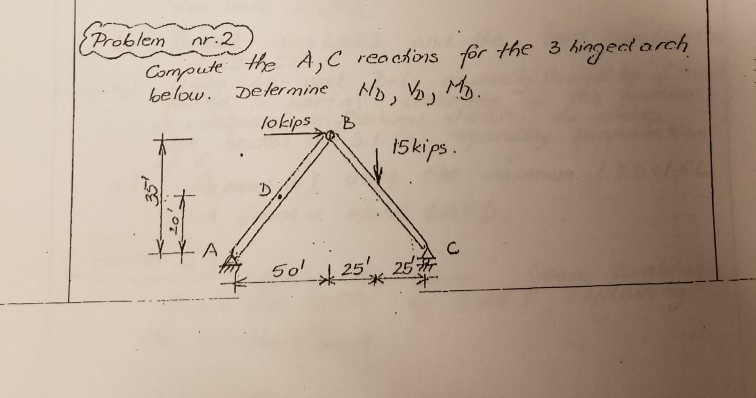 Problem nr.2
Compute the A, C reactions for the 3 hinged arch
below. Determine ND, VD, MD.
10kips
B
15kips.
35'
D
20'
A
C
50'
25'
25'